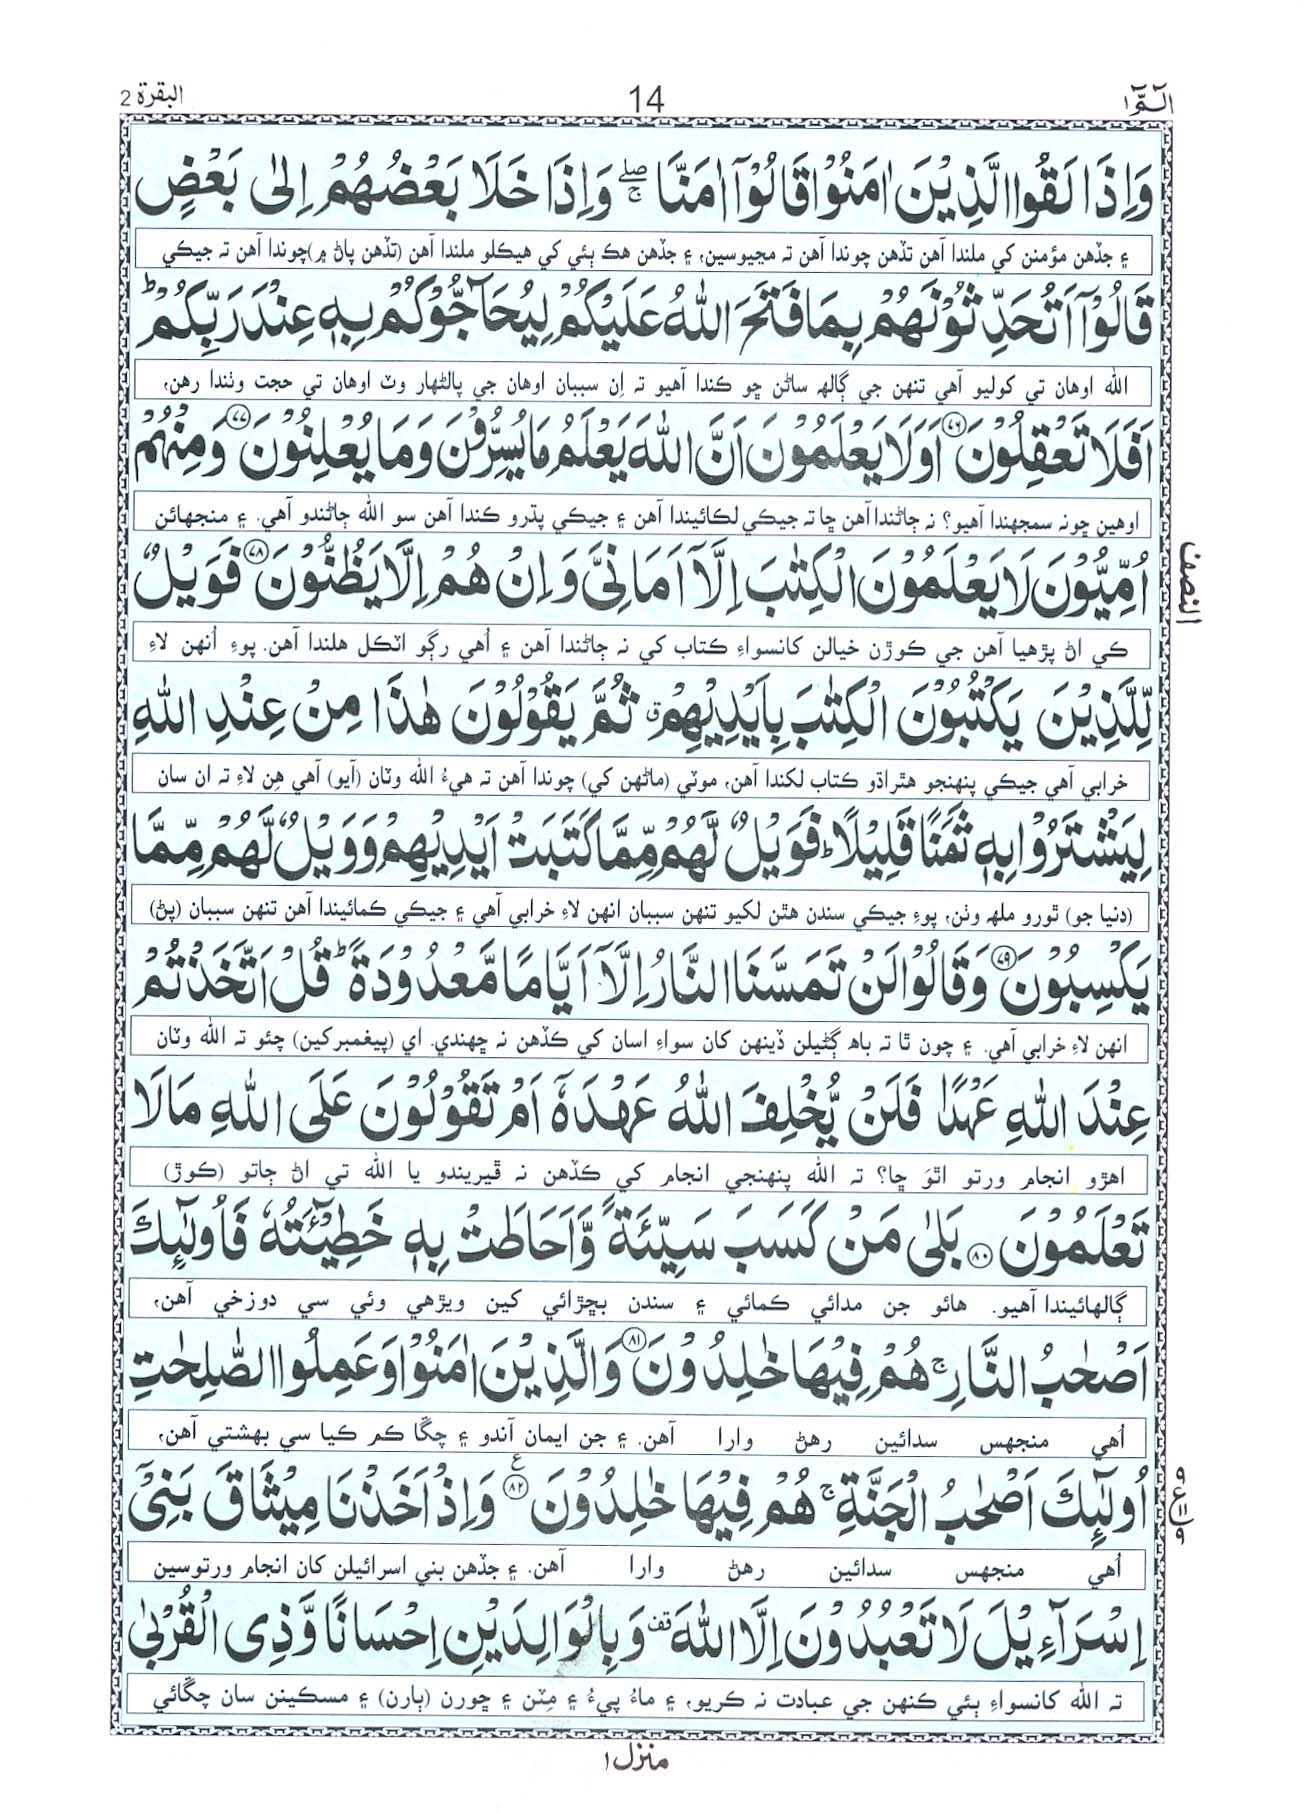 الٓمّٓ ١
14
البقرة 2
وَاِذَا لَقُوا الَّذِيْنَ اٰمَنُوْا قَالُوْٓا اٰمَنَّا ۖۚ وَاِذَا خَلَا بَعْضُهُمْ اِلٰى بَعْضٍ
۽ جڏهن مؤمنن کي ملندا آهن تڏهن چوندا آهن تہ مڃيوسين، ۽ جڏهن هڪ ٻئي کي هيڪلو ملندا آهن (تڏهن پاڻ ۾) چوندا آهن تہ جيڪي
قَالُوْٓا اَتُحَدِّثُوْنَهُمْ بِمَا فَتَحَ اللّٰهُ عَلَيْكُمْ لِيُحَآجُّوْكُمْ بِهٖ عِنْدَ رَبِّكُمْ ؕ
الله اوهان تي کوليو آهي تنهن جي ڳالھہ ساڻن ڇو ڪندا آهيو تہ اِن سببان اوهان جي پالڻهار وٽ اوهان تي حجت وٺندا رهن،
اَفَلَا تَعْقِلُوْنَ ﴿٧٦﴾ اَوَلَا يَعْلَمُوْنَ اَنَّ اللّٰهَ يَعْلَمُ مَا يُسِرُّوْنَ وَمَا يُعْلِنُوْنَ ﴿٧٧﴾ وَمِنْهُمْ
اوهين ڇونہ سمجهندا آهيو؟ نہ ڄاڻندا آهن ڇا تہ جيڪي لڪائيندا آهن ۽ جيڪي پڌرو ڪندا آهن سو الله ڄاڻندو آهي. ۽ منجهائن
اُمِّيُّوْنَ لَا يَعْلَمُوْنَ الْكِتٰبَ اِلَّآ اَمَانِىَّ وَاِنْ هُمْ اِلَّا يَظُنُّوْنَ ﴿٧٨﴾ فَوَيْلٌ
النصف
ڪي اڻ پڙهيا آهن جي ڪوڙن خيالن کانسواءِ ڪتاب کي نہ ڄاڻندا آهن ۽ اُهي رڳو اٽڪل هلندا آهن. پوءِ اُنهن لاءِ
لِّلَّذِيْنَ يَكْتُبُوْنَ الْكِتٰبَ بِاَيْدِيْهِمْ ۗ ثُمَّ يَقُوْلُوْنَ هٰذَا مِنْ عِنْدِ اللّٰهِ
خرابي آهي جيڪي پنهنجو هٿراڌو ڪتاب لکندا آهن، موٽي (ماڻهن کي) چوندا آهن تہ هيءُ الله وٽان (آيو) آهي هِن لاءِ تہ ان سان
لِيَشْتَرُوْا بِهٖ ثَمَنًا قَلِيْلًا ؕ فَوَيْلٌ لَّهُمْ مِّمَّا كَتَبَتْ اَيْدِيْهِمْ وَوَيْلٌ لَّهُمْ مِّمَّا
(دنيا جو) ٿورو ملھہ وٺن، پوءِ جيڪي سندن هٿن لکيو تنهن سببان انهن لاءِ خرابي آهي ۽ جيڪي ڪمائيندا آهن تنهن سببان (پڻ)
يَكْسِبُوْنَ ﴿٧٩﴾ وَقَالُوْا لَنْ تَمَسَّنَا النَّارُ اِلَّآ اَيَّامًا مَّعْدُوْدَةً ؕ قُلْ اَتَّخَذْتُمْ
انهن لاءِ خرابي آهي. ۽ چون ٿا تہ باھہ ڳڻيلن ڏينهن کان سواءِ اسان کي ڪڏهن نہ ڇهندي. اي (پيغمبرڪين) چئو تہ الله وٽان
عِنْدَ اللّٰهِ عَهْدًا فَلَنْ يُّخْلِفَ اللّٰهُ عَهْدَهٗٓ اَمْ تَقُوْلُوْنَ عَلَى اللّٰهِ مَا لَا
اهڙو انجام ورتو اٿوَ ڇا؟ تہ الله پنهنجي انجام کي ڪڏهن نہ ڦيريندو يا الله تي اڻ ڄاتو (ڪوڙ)
تَعْلَمُوْنَ ﴿٨٠﴾ بَلٰى مَنْ كَسَبَ سَيِّئَةً وَّاَحَاطَتْ بِهٖ خَطِيْٓئَتُهٗ فَاُولٰٓئِكَ
ڳالهائيندا آهيو. هائو جن مدائي ڪمائي ۽ سندن بڇڙائي کين ويڙهي وئي سي دوزخي آهن،
اَصْحٰبُ النَّارِ ۚ هُمْ فِيْهَا خٰلِدُوْنَ ﴿٨١﴾ وَالَّذِيْنَ اٰمَنُوْا وَعَمِلُوا الصّٰلِحٰتِ
اُهي منجهس سدائين رهڻ وارا آهن. ۽ جن ايمان آندو ۽ چڱا ڪم ڪيا سي بهشتي آهن،
اُولٰٓئِكَ اَصْحٰبُ الْجَنَّةِ ۚ هُمْ فِيْهَا خٰلِدُوْنَ ﴿٨٢﴾ وَاِذْ اَخَذْنَا مِيْثَاقَ بَنِىْٓ
اُهي منجهس سدائين رهڻ وارا آهن. ۽ جڏهن بني اسرائيلن کان انجام ورتوسين
اِسْرَآءِيْلَ لَا تَعْبُدُوْنَ اِلَّا اللّٰهَ ۟ وَبِالْوَالِدَيْنِ اِحْسَانًا وَّذِى الْقُرْبٰى
تہ الله کانسواءِ ٻئي ڪنهن جي عبادت نہ ڪريو، ۽ ماءُ پيءُ ۽ مِٽن ۽ ڇورن (ٻارن) ۽ مسڪينن سان چڱائي
منزل ١